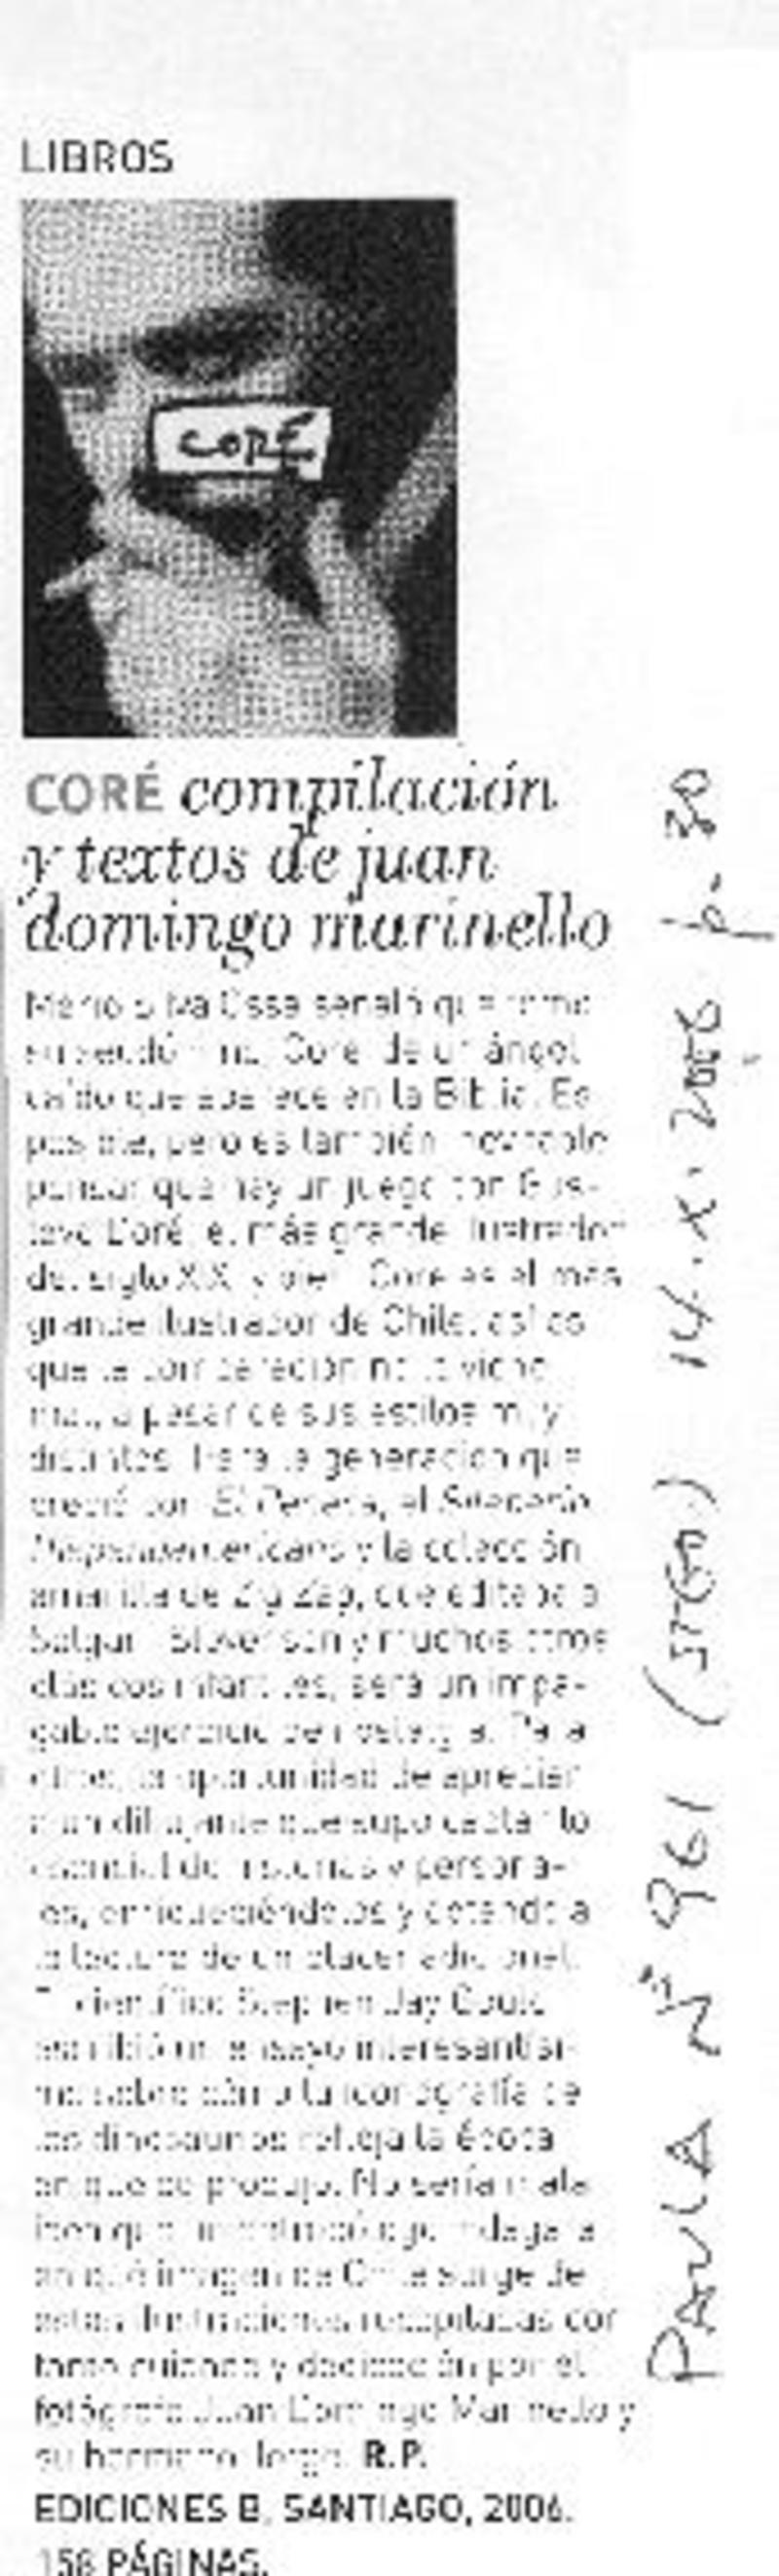 LIBROS
CORÉ
CORÉ compilación
y textos de juan
domingo marinello
Mario Silva Ossa señaló que tomó
su seudónimo, Coré, de un ángel
caído que aparece en la Biblia. Es
posible, pero es también inevitable
pensar que hay un juego con Gus-
tavo Doré, el más grande ilustrador
del siglo XIX y bien Coré es el más
grande ilustrador de Chile, así es
que la comparación no le viene
mal, a pesar de sus estilos muy
distintos. Para la generación que
creció con El Peneca, el
y la colección
amarilla de Zig Zag, que editaba a
Salgari, Stevenson y muchos otros
clásicos infantiles, será un impa-
gable ejercicio de nostalgia. Para
otros, la oportunidad de apreciar
a un dibujante que supo captar lo
esencial de historias y persona-
jes, enriqueciéndolos y dotando a
la lectura de un placer adicional.
El científico Stephen Jay Gould
escribió un ensayo interesantísi-
mo sobre cómo la iconografía de
los dinosaurios refleja la época
en que se produjo. No sería mala
idea que un indagara
en qué imagen de Chile surge de
estas ilustraciones recopiladas con
tanto cuidado y dedicación por el
fotógrafo Juan Domingo Marinello y
su hermano Jorge. R.P.
EDICIONES B, SANTIAGO, 2006.
158 PÁGINAS.
PAULA Nº 961 (STGO) 14.X.2006 p. 30